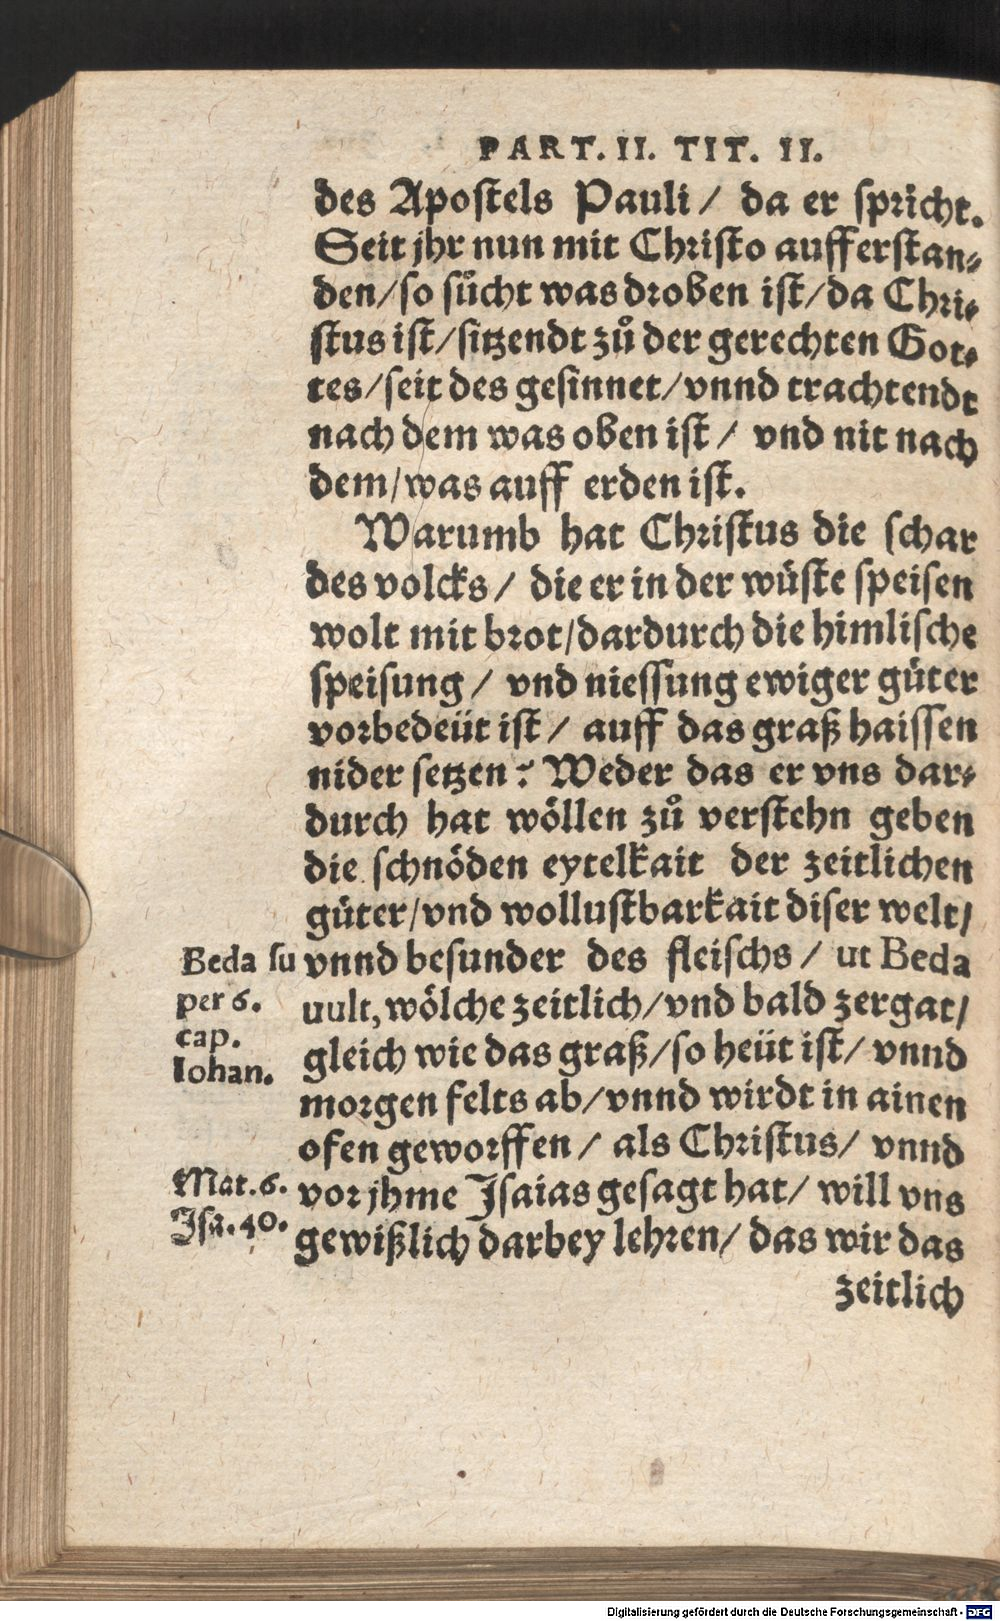 PART. II. TIT. II.
des Apostels Pauli / da er spricht.
Seit jhr nun mit Christo aufferstan⸗
den / so suͦcht was droben ist / da Chri⸗
stus ist / sitzendt zuͦ der gerechten Got⸗
tes / seit des gesinnet / vnnd trachtendt
nach dem was oben ist / vnd nit nach
dem / was auff erden ist.
Warumb hat Christus die schar
des volcks / die er in der wüste speisen
wolt mit brot / dardurch die himlische
speisung / vnd niessung ewiger güter
vorbedeüt ist / auff das graß haissen
nider setzen? Weder das er vns dar⸗
durch hat wöllen zuͦ verstehn geben
die schnöden eytelkait der zeitlichen
güter / vnd wollustbarkait diser welt /
vnnd besunder des fleischs / ut Beda
uult, wölche zeitlich / vnd bald zergat /
gleich wie das graß / so heüt ist / vnnd
morgen felts ab / vnnd wirdt in ainen
ofen geworffen / als Christus / vnnd
vor jhme Isaias gesagt hat / will vns
gewißlich darbey lehren / das wir das
zeitlich
Beda su
per 6.
cap.
Iohan.
Mat. 6.
Isa. 40.
Digitalisierung gefördert durch die Deutsche Forschungsgemeinschaft - DFG